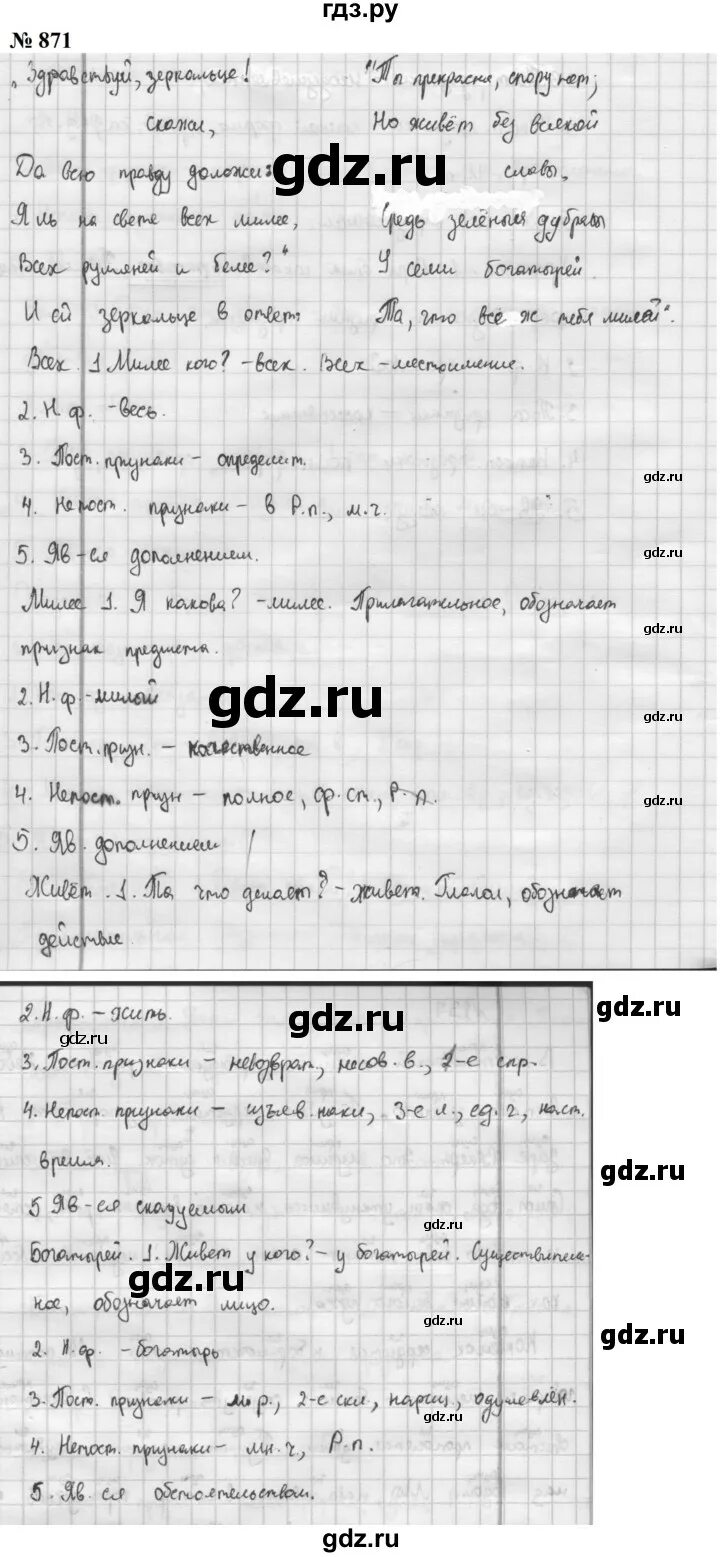 гдз.ру
№ 871
„Здравствуй, зеркальце!
скажи,
Да всю правду доложи:
Я ль на свете всех милее,
Всех румяней и белее?"
И ей зеркальце в ответ:
"Ты прекрасна, спору нет;
Но живёт без всякой
славы,
Средь зелёныя дубравы
У семи богатырей
Та, что всё ж тебя милей".
gdz.ru
Всех. 1 Милее кого? - всех. Всех - местоимение.
2. Н. ф. - весь.
3. Пост. признаки - определит.
gdz.ru
4. Непост. признаки - в Р.п., м.ч.
5. Яв-ся дополнением.
gdz.ru
Милее 1. Я какова? - милее. Прилагательное, обозначает
gdz.ru
признак предмета.
2. Н. ф. - милый
gdz.ru
gdz.ru
3. Пост. призн. - качественное
4. Непост. призн - полное, ср. ст., Р. п.
gdz.ru
5. Яв. дополнением
Живёт. 1. Та что делает? - живет. Глагол, обозначает
gdz.ru
действие
2. Н. ф. - жить.
gdz.ru
gdz.ru
3. Пост. признаки - невозврат., несов. в., 1-е спр.
4. Непост. признаки - изъяв. накл, 3-е л., ед. ч, наст.
время.
gdz.ru
5 Яв-ся сказуемым
gdz.ru
Богатырей. 1. Живет у кого? - у богатырей. Существитель-
gdz.ru
ное, обозначает лицо.
gdz.ru
gdz.ru
2. Н. ф. - богатырь
3. Пост. признаки - м. р., 2-е скл., нариц., одушевлён.
gdz.ru
4. Непост. признаки - мн. ч., Р. п.
5. Яв. ся обстоятельством.
gdz.ru
gdz.ru